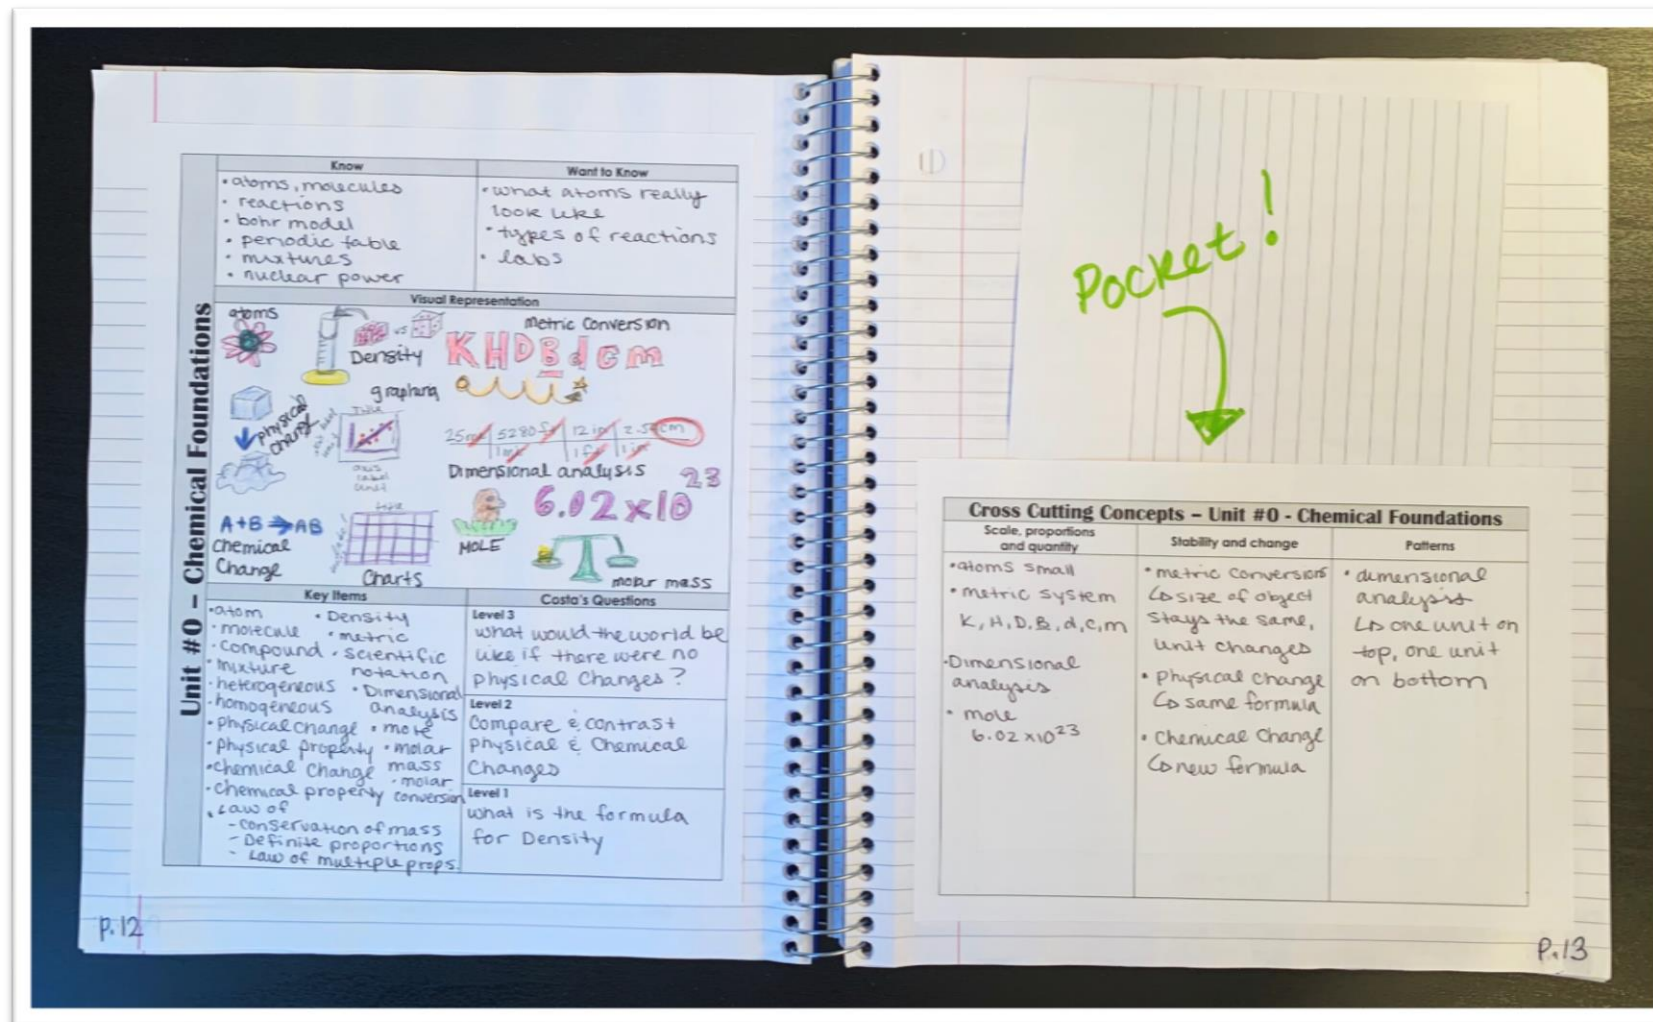 Unit #0 – Chemical Foundations
Know
• atoms, molecules
• reactions
• bohr model
• periodic table
• mixtures
• nuclear power
Want to Know
• what atoms really
look like
• types of reactions
• labs
Visual Representation
atoms
vs
Density
metric conversion
KHDBdcm
graphing
physical
change
Title
axis
label
unit
25mi 5280ft 12in 2.54cm
1mi 1ft 1in
Dimensional analysis
A+B → AB
Chemical
Change
title
Charts
MOLE
6.02x10 23
molar mass
Key Items
• atom
• molecule
• compound
• mixture
• heterogeneous
• homogeneous
• physical change
• physical property
• chemical change
• chemical property
• Law of
- conservation of mass
- Definite proportions
- Law of multiple props.
• Density
• metric
• scientific
notation
• Dimensional
analysis
• mole
• molar
mass
• molar
conversion
Costa's Questions
Level 3
what would the world be
like if there were no
physical changes?
Level 2
Compare & contrast
physical & Chemical
Changes
Level 1
what is the formula
for Density
P.12
Pocket!
Cross Cutting Concepts – Unit #0 - Chemical Foundations
Scale, proportions
and quantity
• atoms small
• metric system
K, H, D, B, d, c, m
• Dimensional
analysis
• mole
6.02 x10 23
Stability and change
• metric conversions
↳ size of object
stays the same,
unit changes
• physical change
↳ same formula
• Chemical Change
↳ new formula
Patterns
• dimensional
analysis
↳ one unit on
top, one unit
on bottom
P.13